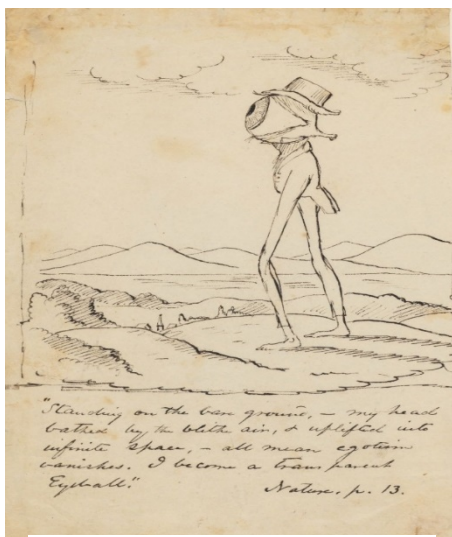 "Standing on the bare ground, – my head
bathed by the blithe air, & uplifted into
infinite space, – all mean egotism
vanishes. I become a transparent
Eyeball."
Nature, p. 13.